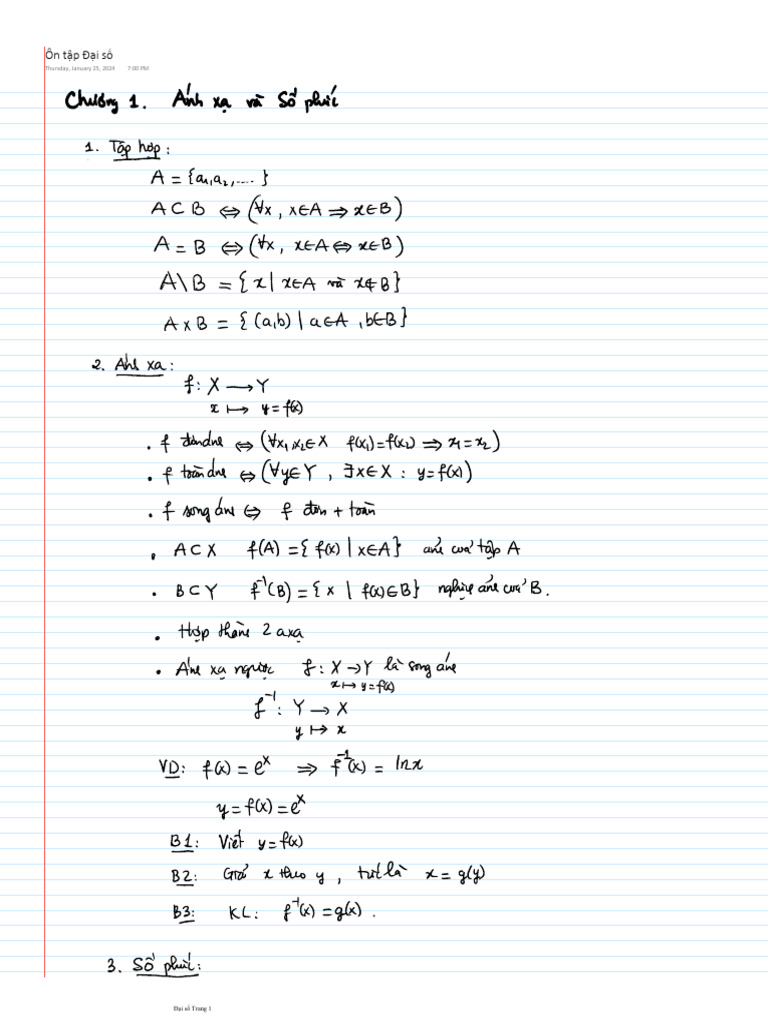 Ôn tập Đại số
Thursday, January 25, 2024 7:00 PM
Chương 1. Ánh xạ và Số phức
1. Tập hợp:
A = {a₁,a₂,....}
A ⊂ B ⇔ (∀x, x∈A ⇒ x∈B)
A = B ⇔ (∀x, x∈A ⇔ x∈B)
A\B = {x | x∈A và x∉B}
A×B = {(a,b) | a∈A, b∈B}
2. Ánh xạ:
f: X ⟶ Y
x ⟼ y = f(x)
. f đơn ánh ⇔ (∀x₁,x₂∈X f(x₁)=f(x₂) ⇒ x₁=x₂)
. f toàn ánh ⇔ (∀y∈Y, ∃x∈X : y=f(x))
. f song ánh ⇔ f đơn + toàn
. A⊂X f(A) = {f(x) | x∈A} ảnh của tập A
. B⊂Y f⁻¹(B) = {x | f(x)∈B} nghịch ảnh của B.
. Hợp thành 2 axạ
. Ánh xạ ngược f: X → Y là song ánh
x ↦ y=f(x)
f⁻¹: Y → X
y ↦ x
VD: f(x) = eˣ ⇒ f⁻¹(x) = lnx
y = f(x) = eˣ
B1: Viết y=f(x)
B2: Giải x theo y, tức là x = g(y)
B3: KL: f⁻¹(x) = g(x).
3. Số phức:
Đại số Trang 1